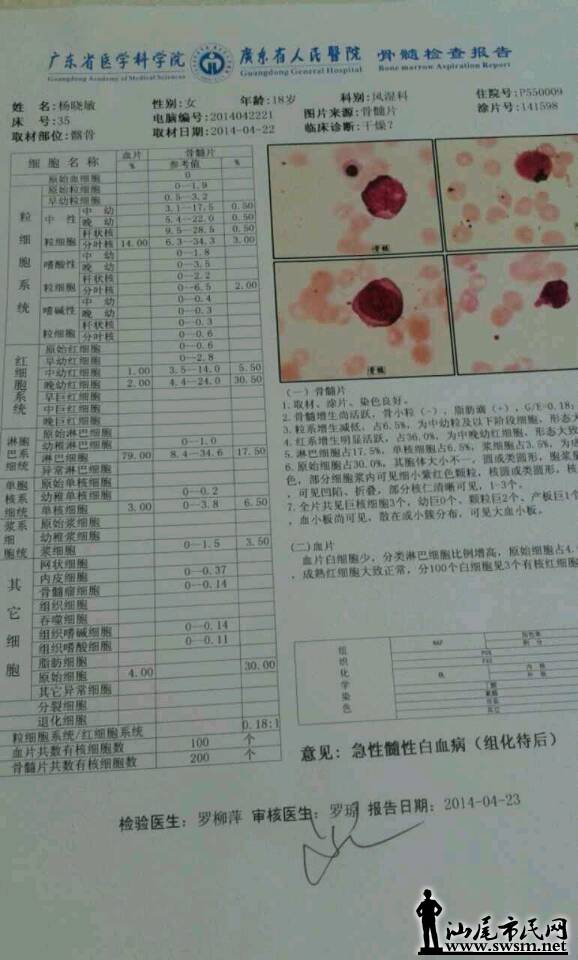 广东省医学科学院 廣东省人民醫院 骨髓检查报告
Guangdong Academy of Medical Sciences Guangdong General Hospital Bone-marrow Aspiration Report
姓 名:杨晓敏 性别:女 年龄:18岁 科别:风湿科 住院号:P550009
床 号:35 电脑编号:2014042221 图片来源:骨髓片 涂片号:141598
取材部位:髂骨 取材日期:2014-04-22 临床诊断:干燥?
细胞名称 血片 骨髓片
% 参考值 %
原始血细胞 0
粒细胞系统 原始粒细胞 0—1.9
早幼粒细胞 0.5—3.2
中性 中幼 3.1—17.5 0.50
晚幼 5.4—22.0 0.50
粒细胞 杆状核 9.5—28.5 0.50
分叶核 14.00 6.3—34.3 3.00
嗜酸性 中幼 0—1.8
晚幼 0—3.5
粒细胞 杆状核 0—2.2
分叶核 0—6.5 2.00
嗜碱性 中幼 0—0.4
晚幼 0—0.3
粒细胞 杆状核 0—0.3
分叶核 0—0.6
红细胞系统 原始红细胞 0—0.6
早幼红细胞 0—2.8
中幼红细胞 1.00 3.5—14.0 5.50
晚幼红细胞 2.00 4.4—24.0 30.50
早巨红细胞
中巨红细胞
晚巨红细胞
淋巴系统 原始淋巴细胞
幼稚淋巴细胞 0—1.0
淋巴细胞 79.00 8.4—34.6 17.50
异常淋巴细胞
单核系统 原始单核细胞
幼稚单核细胞 0—0.2
单核细胞 3.00 0—3.8 6.50
浆细胞系统 原始浆细胞
幼稚浆细胞
浆细胞 0—1.5 3.50
其它细胞 网状细胞
内皮细胞 0—0.37
骨髓瘤细胞 0—0.14
组织细胞
吞噬细胞
组织嗜碱细胞 0—0.14
组织嗜酸细胞 0—0.11
脂肪细胞
原始细胞 4.00 30.00
其它异常细胞
分裂细胞
退化细胞
粒细胞系统/红细胞系统 0.18:1
血片共数有核细胞数 100 个
骨髓片共数有核细胞数 200 个
(一)骨髓片
1.取材、涂片、染色良好。
2.骨髓增生尚活跃,骨小粒(-),脂肪滴(+),G/E=0.18:
3.粒系增生减低,占6.5%,为中幼粒及以下阶段细胞,形态
4.红系增生明显活跃,占36.0%,为中晚幼红细胞,形态大致
5.淋巴细胞占17.5%,单核细胞占6.5%,浆细胞占3.5%,为
6.原始细胞占30.0%,其胞体大小不一,圆或类圆形,胞浆
色,部分细胞浆内可见细小紫红色颗粒,核圆或类圆形,核
,可见凹陷、折叠,部分核仁清晰可见,1-3个。
7.全片共见巨核细胞3个,幼巨0个、颗粒巨2个、产板巨1个
,血小板尚可见,散在或小簇分布,可见大血小板。
(二)血片
血片白细胞少,分类淋巴细胞比例增高,原始细胞占4.
,成熟红细胞大致正常,分100个白细胞见3个有核红细胞
组织化学染色
意见:急性髓性白血病(组化待后)
检验医生:罗柳萍 审核医生:罗琼 报告日期:2014-04-23
汕尾市民网
www.swsm.net